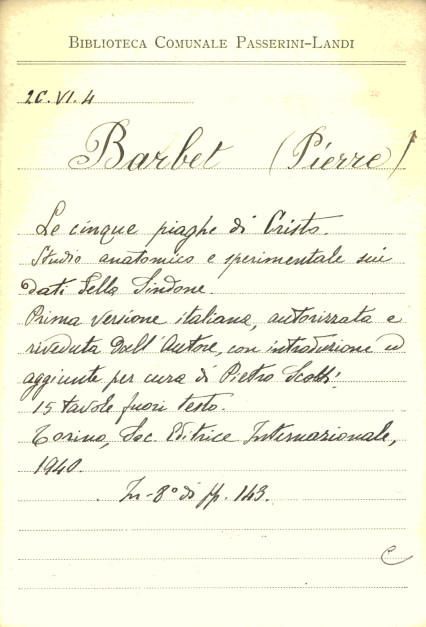 BIBLIOTECA COMUNALE PASSERINI-LANDI
2C.VI.4
Barbet (Pierre)
Le cinque piaghe di Cristo.
Studio anatomico e sperimentale sui
dati della Sindone.
Prima versione italiana, autorizzata e
riveduta dall'Autore, con introduzione ed
aggiunte per cura di Pietro Scotti.
15 tavole fuori testo.
Torino, Soc. Editrice Internazionale,
1940.
In-8° di pp. 143.
C